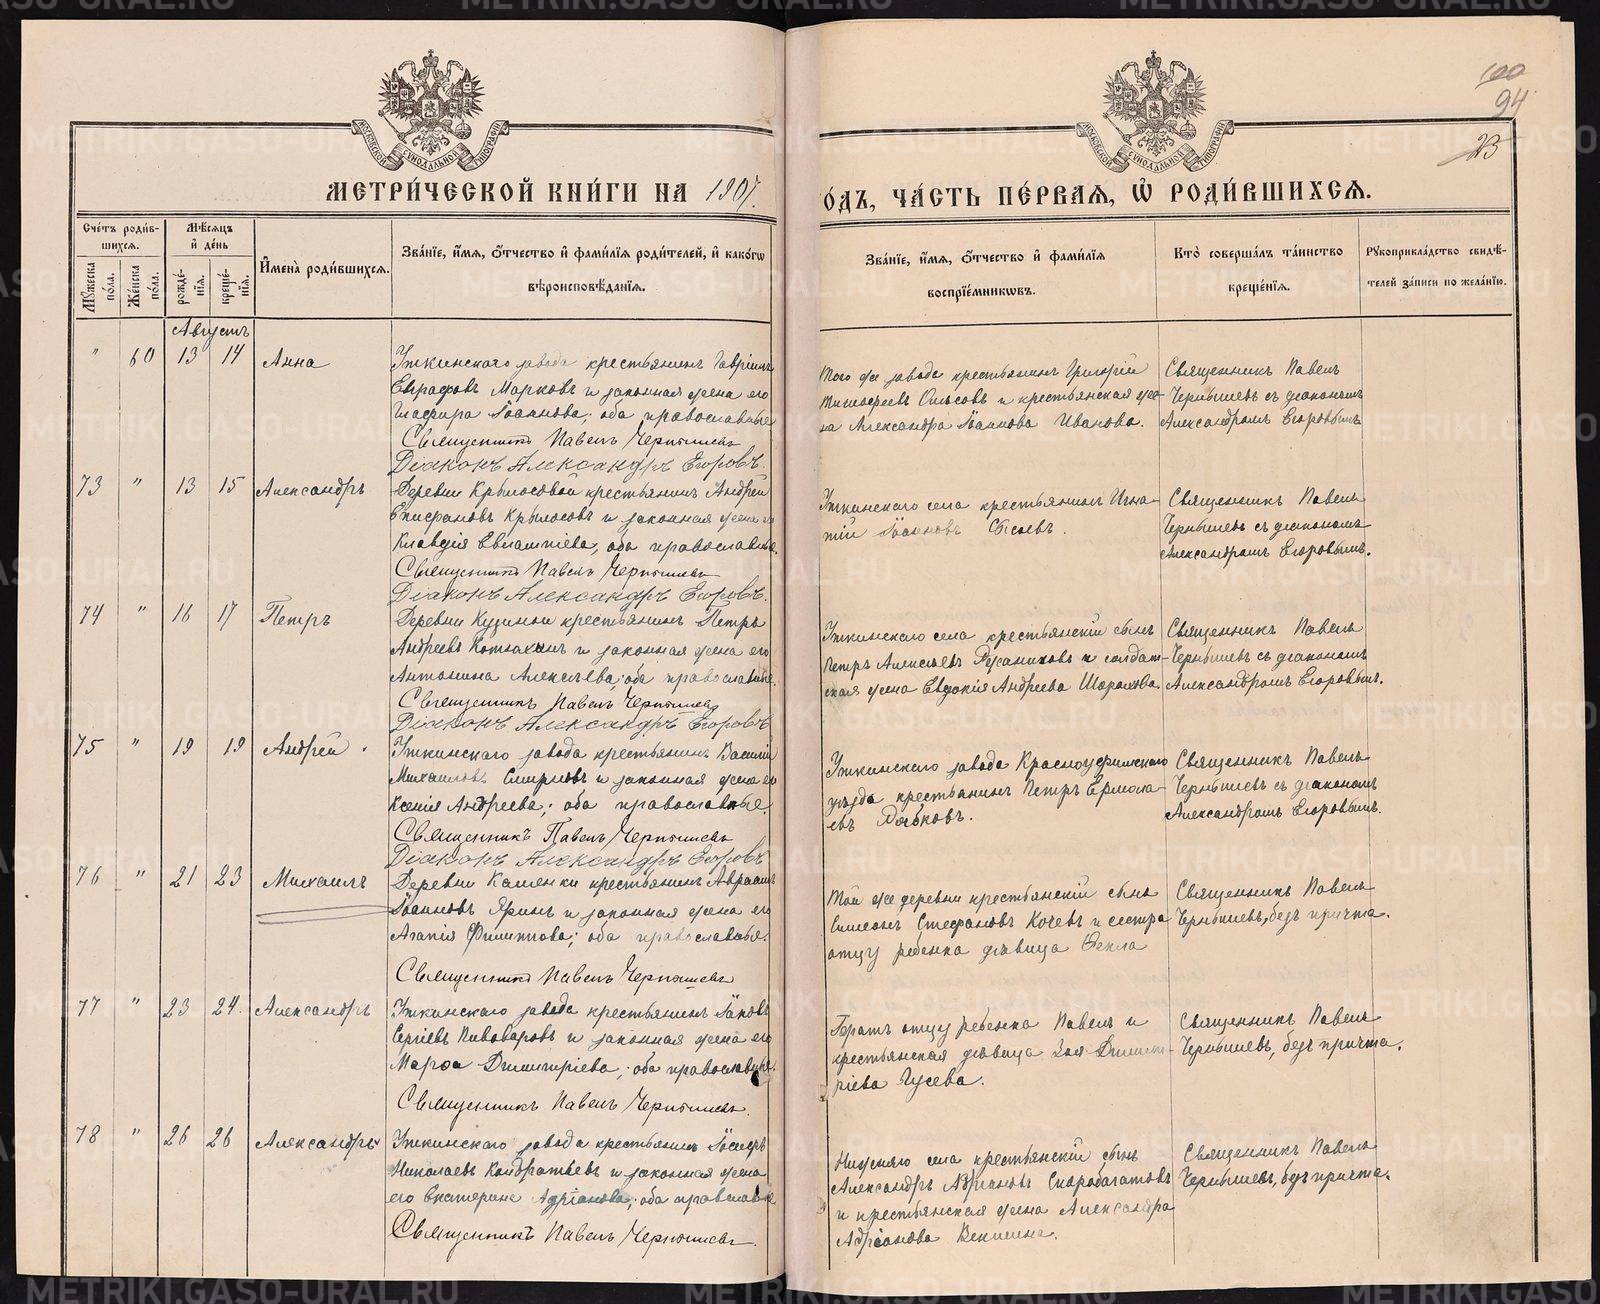 100
94
23
МОСКОВСКОЙ СѴНОДАЛЬНОЙ ТИПОГРАФІИ
МОСКОВСКОЙ СѴНОДАЛЬНОЙ ТИПОГРАФІИ
МЕТРИ́ЧЕСКОЙ КНИ́ГИ НА 1907.
О́ДЪ, ЧА́СТЬ ПЕ́РВАЯ, Ѡ҆ РОДИ́ВШИХСЯ.
Сче́тъ роди́в-
шихся.
Мꙋжеска по́ла.
Же́нска по́ла.
Мѣ́сяцъ и҆ де́нь
рожде́нїя.
креще́нїя.
И҆мена̀ роди́вшихся.
Зва́нїе, и҆́мя, ѻ҆́тчество и҆ фами́лїя роди́телей, и҆ како́гѡ
вѣроисповѣ́данїя.
Зва́нїе, и҆́мя, ѻ҆́тчество и҆ фами́лїя
воспрїе́мникѡвъ.
Кто̀ соверша́лъ та́инство
креще́нїя.
Рꙋкоприкла́дство свидѣ́-
телей за́писи по жела́нїю.
Августъ
" 60 13 14 Анна
Уткинскаго завода крестьянинъ Гавріилъ
Евграфовъ Марковъ и законная жена его
Глафира Іоаннова; оба православные
Священникъ Павелъ Чернышевъ
Діаконъ Александръ Егоровъ.
Того же завода крестьянинъ Григорій
Тимофеевъ и крестьянская же-
на Александра Іоаннова Иванова.
Священникъ Павелъ
Чернышевъ съ діакономъ
Александромъ Егоровымъ
73 " 13 15 Александръ
Деревни Крылосовой крестьянинъ Андрей
Епифановъ Крылосовъ и законная жена его
Клавдія Евлампіева, оба православные.
Священникъ Павелъ Чернышевъ
Діаконъ Александръ Егоровъ.
Уткинскаго села крестьянинъ Игна-
тій Іоанновъ Сысоевъ.
Священникъ Павелъ
Чернышевъ съ діакономъ
Александромъ Егоровымъ.
74 " 16 17 Петръ
Деревни Кузиной крестьянинъ Петръ
Андреевъ и законная жена его
Антонина Алексѣева; оба православные.
Священникъ Павелъ Чернышевъ
Діаконъ Александръ Егоровъ
Уткинскаго села крестьянскій сынъ
Петръ Алексѣевъ Русиновъ и солдат-
ская жена Евдокія Андреева Шорохова.
Священникъ Павелъ
Чернышевъ съ діакономъ
Александромъ Егоровымъ.
75 " 19 19 Андрей
Уткинскаго завода крестьянинъ Василій
Михаиловъ Смирновъ и законная жена его
Ксенія Андреева; оба православные.
Священникъ Павелъ Чернышевъ
Діаконъ Александръ Егоровъ
Уткинскаго завода Красноуфимскаго
уѣзда крестьянинъ Петръ Ермола-
евъ
Священникъ Павелъ
Чернышевъ съ діакономъ
Александромъ Егоровымъ.
76 " 21 23 Михаилъ
Деревни Каменки крестьянинъ Авраамъ
Іоанновъ Яринъ и законная жена его
Агапія Филиппова; оба православные.
Священникъ Павелъ Чернышевъ
Той же деревни крестьянскій сынъ
Симеонъ Стефановъ Кочевъ и сестра
отцу ребенка дѣвица Ѳекла
Священникъ Павелъ
Чернышевъ, безъ причта.
77 " 23 24. Александръ
Уткинскаго завода крестьянинъ Іаковъ
Сергіевъ Пивоваровъ и законная жена его
Марѳа Димитріева; оба православные.
Священникъ Павелъ Чернышевъ.
Братъ отцу ребенка Павелъ и
крестьянская дѣвица Зоя Димит-
ріева Гусева.
Священникъ Павелъ
Чернышевъ, безъ причта.
78 " 26 26 Александръ
Уткинскаго завода крестьянинъ Іосифъ
Николаевъ Кондратьевъ и законная жена
его Екатерина Адріанова; оба православные
Священникъ Павелъ Чернышевъ.
Нижняго села крестьянскій сынъ
Александръ Адріановъ Скоробогатовъ
и крестьянская жена Александра
Адріанова
Священникъ Павелъ
Чернышевъ, безъ причта.
METRIKI.GASO-URAL.RU